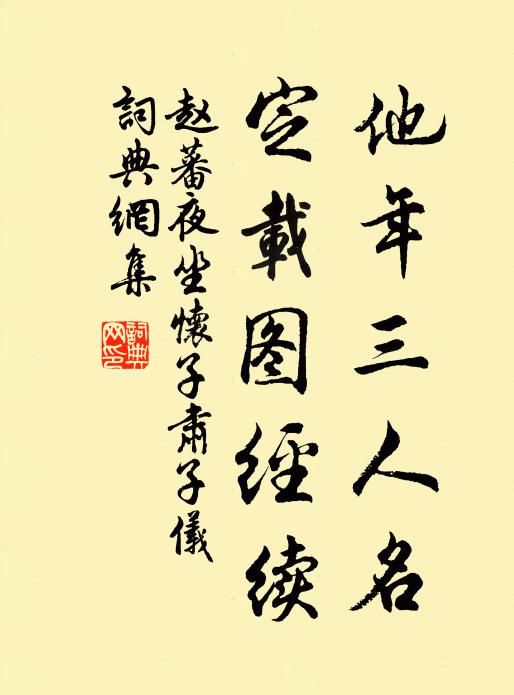 他年三人名
定載图經续
赵蕃夜坐懷子肅子儀
詞典網集
詞典网印